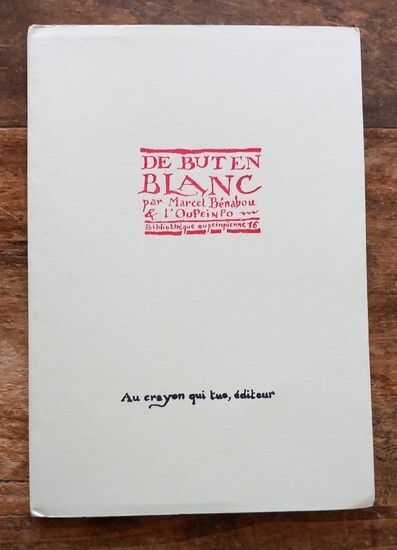 DE BUT EN
BLANC
par Marcel Bénabou
& l'OUPEINPO
Bibliothèque oupeinpienne 16
Au crayon qui tue, éditeur